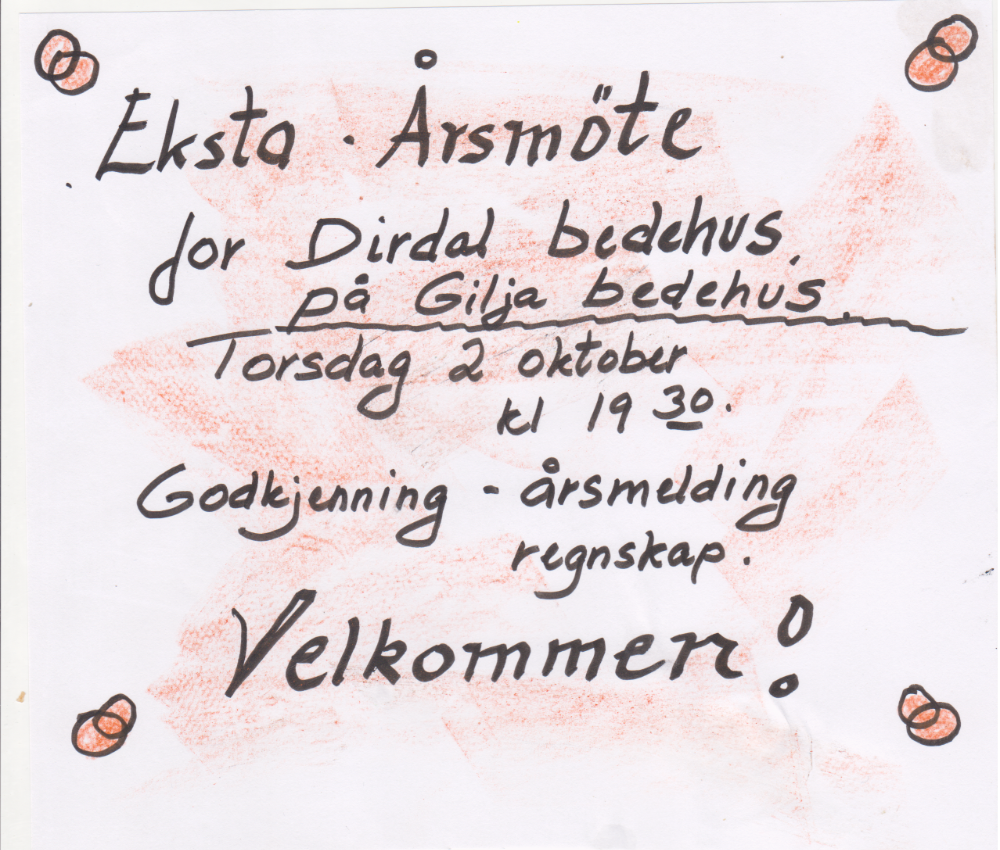 Eksta · Årsmöte
for Dirdal bedehus,
på Gilja bedehus.
Torsdag 2 oktober
kl 19 30.
Godkjenning - årsmelding
regnskap.
Velkommen!